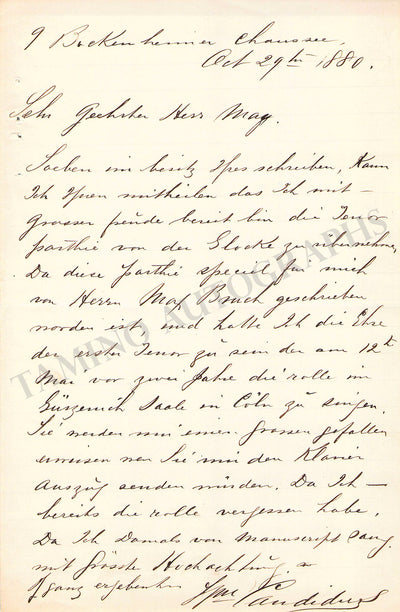 9 Bockenheimer Chaussee.
Oct 29th 1880.
Sehr Geehrter Herr May.
Soeben im besitz Ihres schreiben, kann
Ich Ihnen mittheilen das Ich mit
grosser freude bereit bin die Tenor
parthie von der Glocke zu übernehmen
Da diese parthie speciel für mich
von Herrn Max Bruch geschrieben
worden ist, und hatte Ich die Ehre
der erster Tenor zu sein der am 12t
Mai vor zwei Jahre die rolle im
Gürzenich Saale in Cöln zu singen.
Sie werden mir einen grossen gefallen
erweisen wen Sie mir den Klavier
Auszug senden würden. Da Ich
bereits die rolle vergessen habe.
Da Ich Damals von Manuscript sang.
mit grösste Hochachtung
ganz ergebenster Wm Candidus
TAMINO AUTOGRAPHS